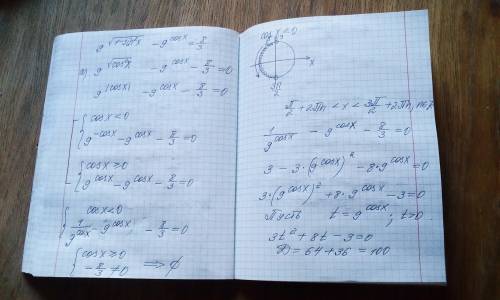 9^√(1-sin²x) - 9^cosx = 8/3
а) 9^√(cos²x) - 9^cosx - 8/3 = 0
9^|cosx| - 9^cosx - 8/3 = 0
{ cosx < 0
9^-cosx - 9^cosx - 8/3 = 0
{ cosx ≥ 0
9^cosx - 9^cosx - 8/3 = 0
{ cosx < 0
1/9^cosx - 9^cosx - 8/3 = 0
{ cosx ≥ 0
-8/3 ≠ 0 ⟹ ∅
cosx < 0
π/2
x
3π/2
π/2 + 2πn < x < 3π/2 + 2πn, n∈Z
1/9^cosx - 9^cosx - 8/3 = 0
3 - 3·(9^cosx)² - 8·9^cosx = 0
3·(9^cosx)² + 8·9^cosx - 3 = 0
Пусть t = 9^cosx; t > 0
3t² + 8t - 3 = 0
D = 64 + 36 = 100